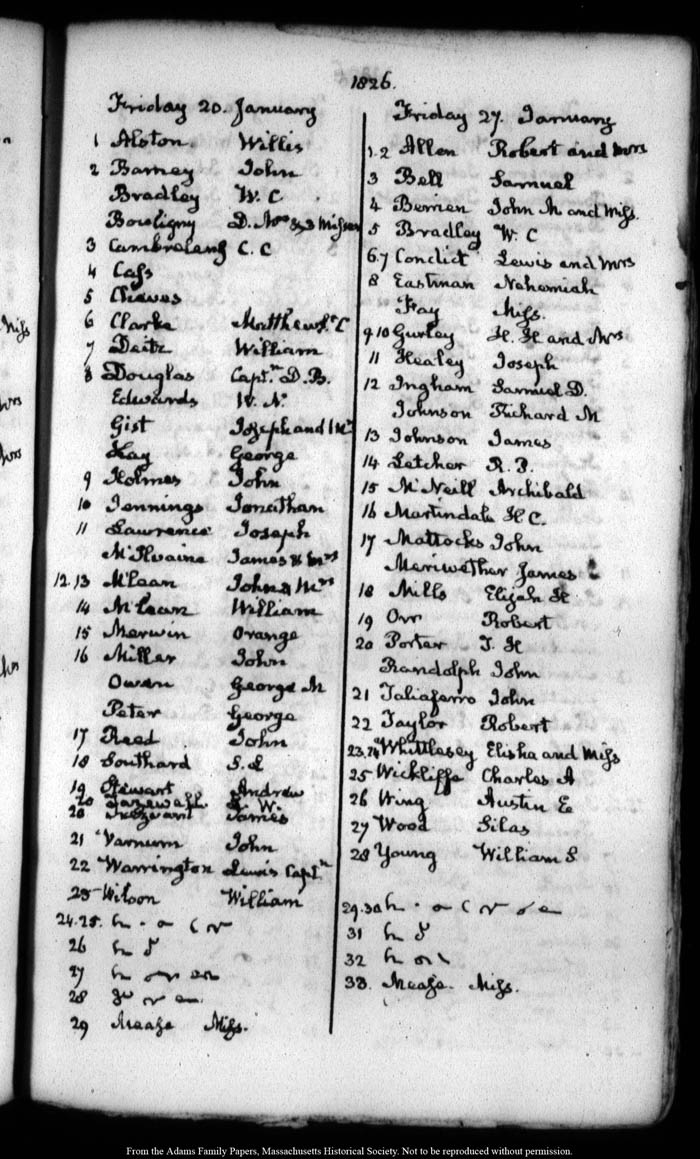 1826.
Friday 20. January
1 Alston Willis
2 Barney John
Bradley W. C
Bouligny D. Mrs & 3 Misses
3 Cambreleng C. C
4 Cass
5 Cheves
6 Clarke Matthew St. C
7 Deitz William
8 Douglas Captn. D. B.
Edwards W. N.
Gist Joseph and Mrs
Hay George
9 Holmes John
10 Jennings Jonathan
11 Lawrence Joseph
McIlvaine James & Mrs
12.13 McLean John & Mrs
14 McLean William
15 Merwin Orange
16 Miller John
Owen George M
Peter George
17 Reed John
18 Southard S. L
19 Stewart Andrew
20 Tazewell L. W.
20 Trezvant James
21 Varnum John
22 Warrington Lewis Captn
23 Wilson William
24.25.
26
27
28
29 Mease Miss.
Friday 27. January
1.2 Allen Robert and Mrs
3 Bell Samuel
4 Berrien John M and Miss.
5 Bradley W. C
6.7 Condict Lewis and Mrs
8 Eastman Nehemiah
Fay Miss.
9 10 Gurley H. H and Mrs
11 Healey Joseph
12 Ingham Samuel D.
Johnson Richard M
13 Johnson James
14 Letcher R. P.
15 McNeill Archibald
16 Martindale H C.
17 Mattocks John
Meriwether James
18 Mills Elijah H
19 Orr Robert
20 Porter T. H
Randolph John
21 Taliaferro John
22 Taylor Robert
23,24 Whittlesey Elisha and Miss
25 Wickliffe Charles A
26 Wing Austin E
27 Wood Silas
28 Young William S
29.30
31
32
33. Mease. Miss.
From the Adams Family Papers, Massachusetts Historical Society. Not to be reproduced without permission.